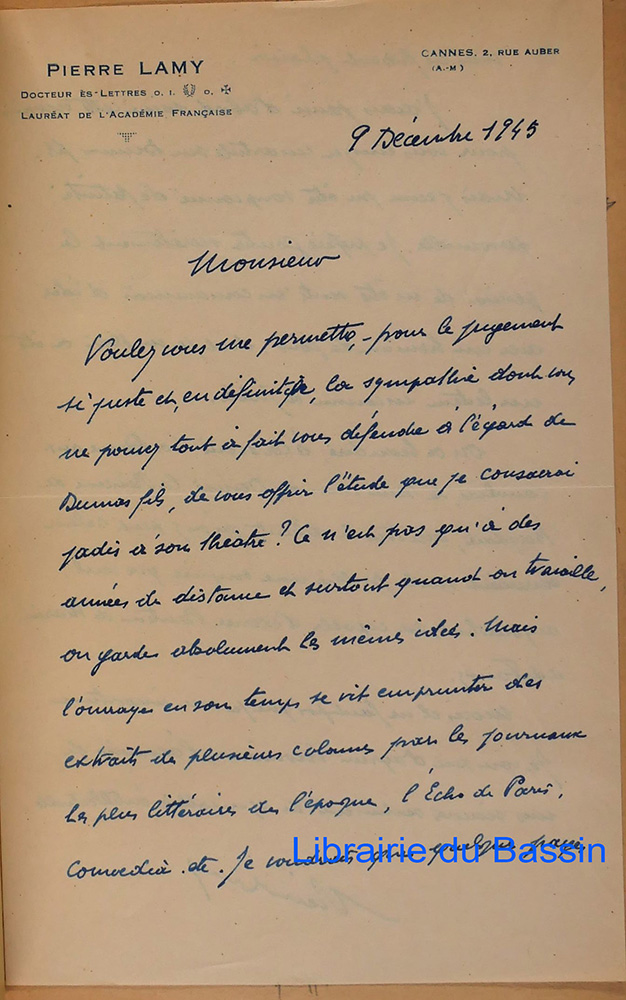 PIERRE LAMY
DOCTEUR ÈS-LETTRES O. I. O.
LAURÉAT DE L'ACADÉMIE FRANÇAISE
CANNES. 2, RUE AUBER
(A.-M)
9 Décembre 1945
Monsieur
Voulez vous me permettre, - pour le jugement
si juste et, en définitive, la sympathie dont vous
ne pouvez tout à fait vous défendre à l'égard de
Dumas fils, de vous offrir l'étude que je consacrai
jadis à son théâtre? Ce n'est pas qu'à des
années de distance et surtout quand on travaille,
on garde absolument les mêmes idées. Mais
l'ouvrage en son temps se vit emprunter des
extraits de plusieurs colonnes par les journaux
les plus littéraires de l'époque, l'Écho de Paris,
Comoedia. etc. Je voudrais que quelque page
Librairie du Bassin